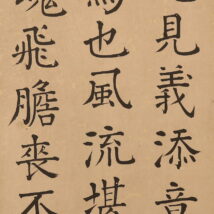 見義添
也風流堪
魂飛膽喪不